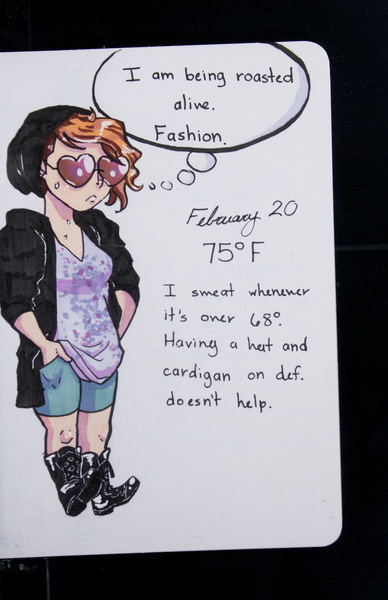 I am being roasted
alive.
Fashion.
February 20
75°F
I sweat whenever
it's over 68°.
Having a hat and
cardigan on def.
doesn't help.